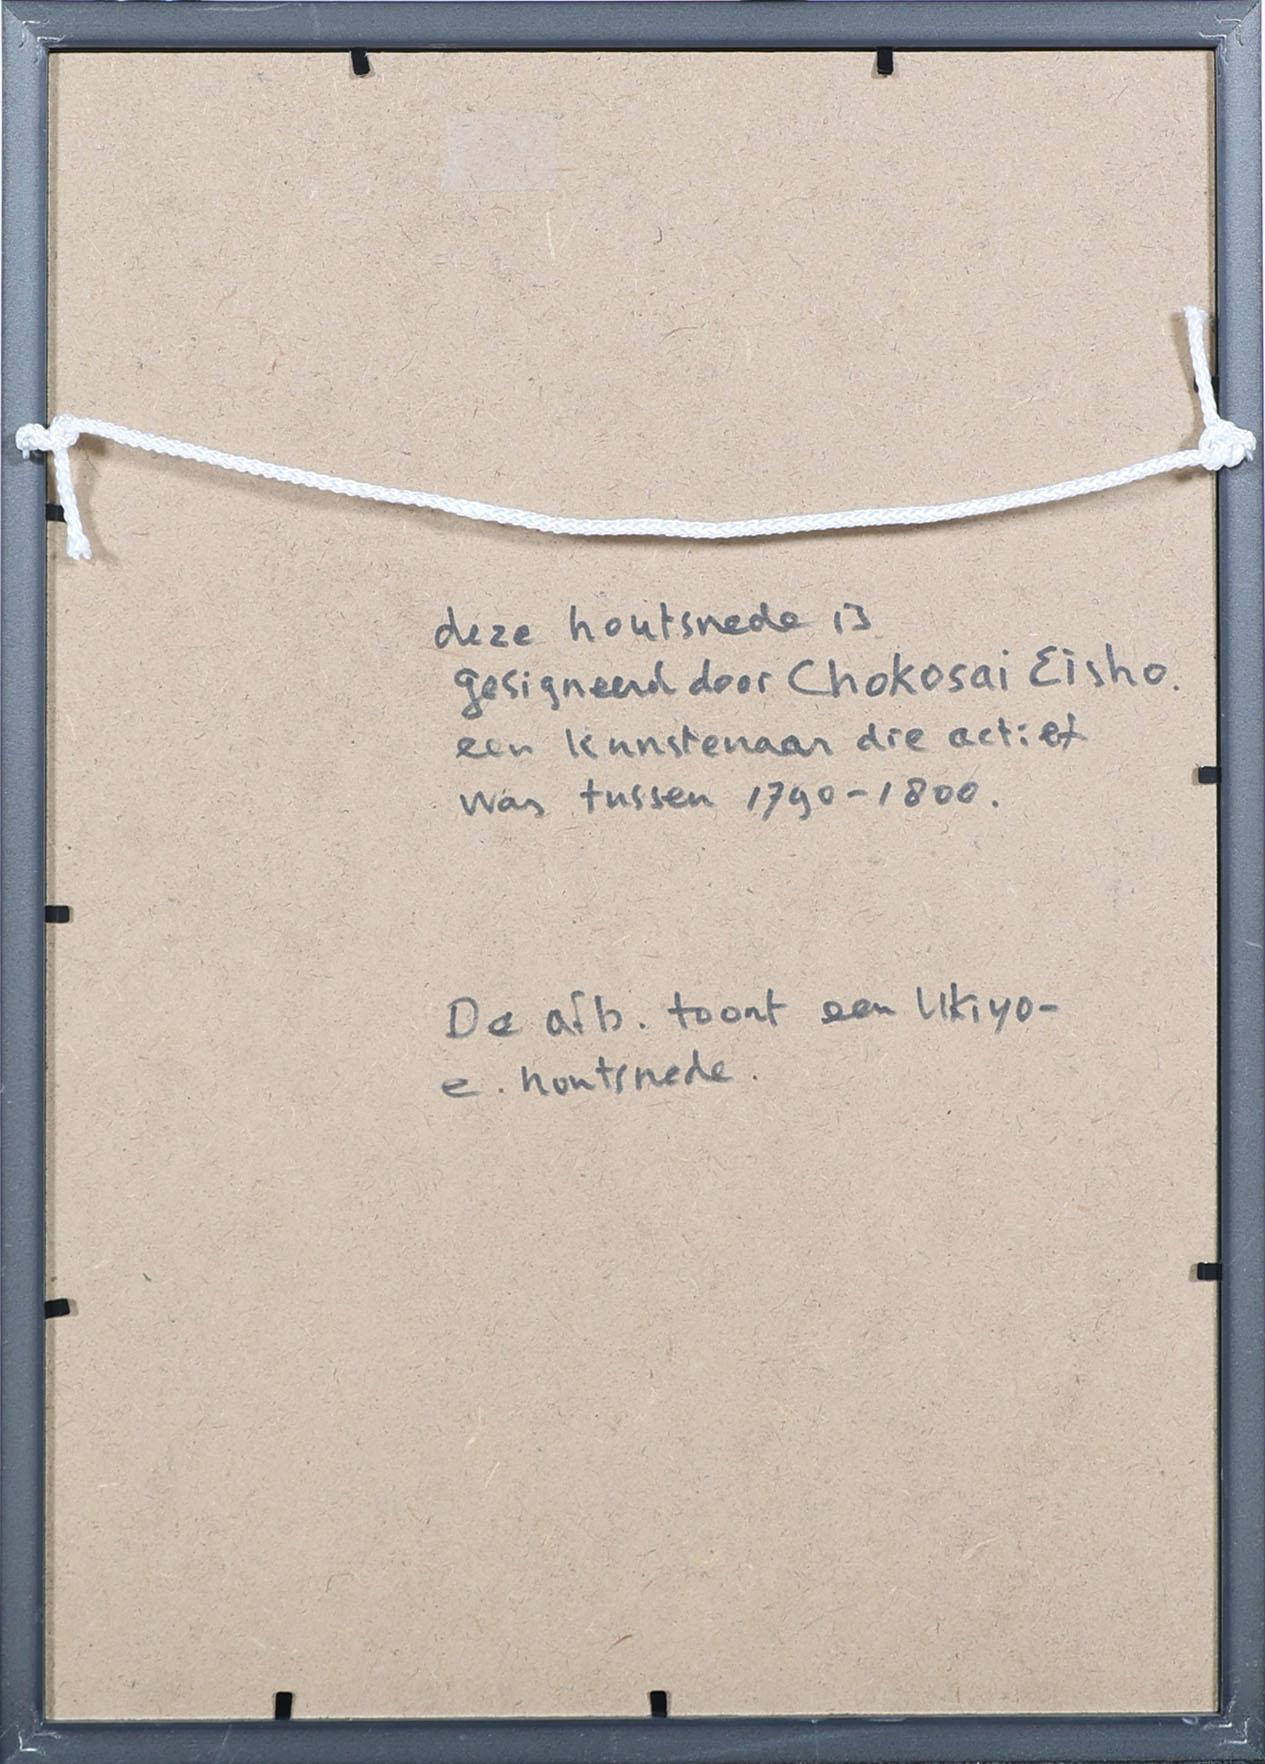 deze houtsnede is
gesigneerd door Chokosai Eisho.
een kunstenaar die actief
was tussen 1790-1800.
De afb. toont een Ukiyo-
e. houtsnede.